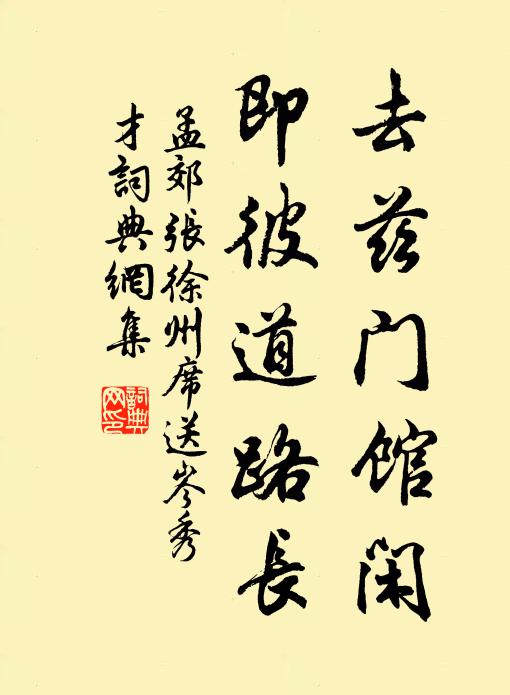 去茲门馆闲
即彼道路長
孟郊張徐州席送岑秀
才詞典網集
詞典网印